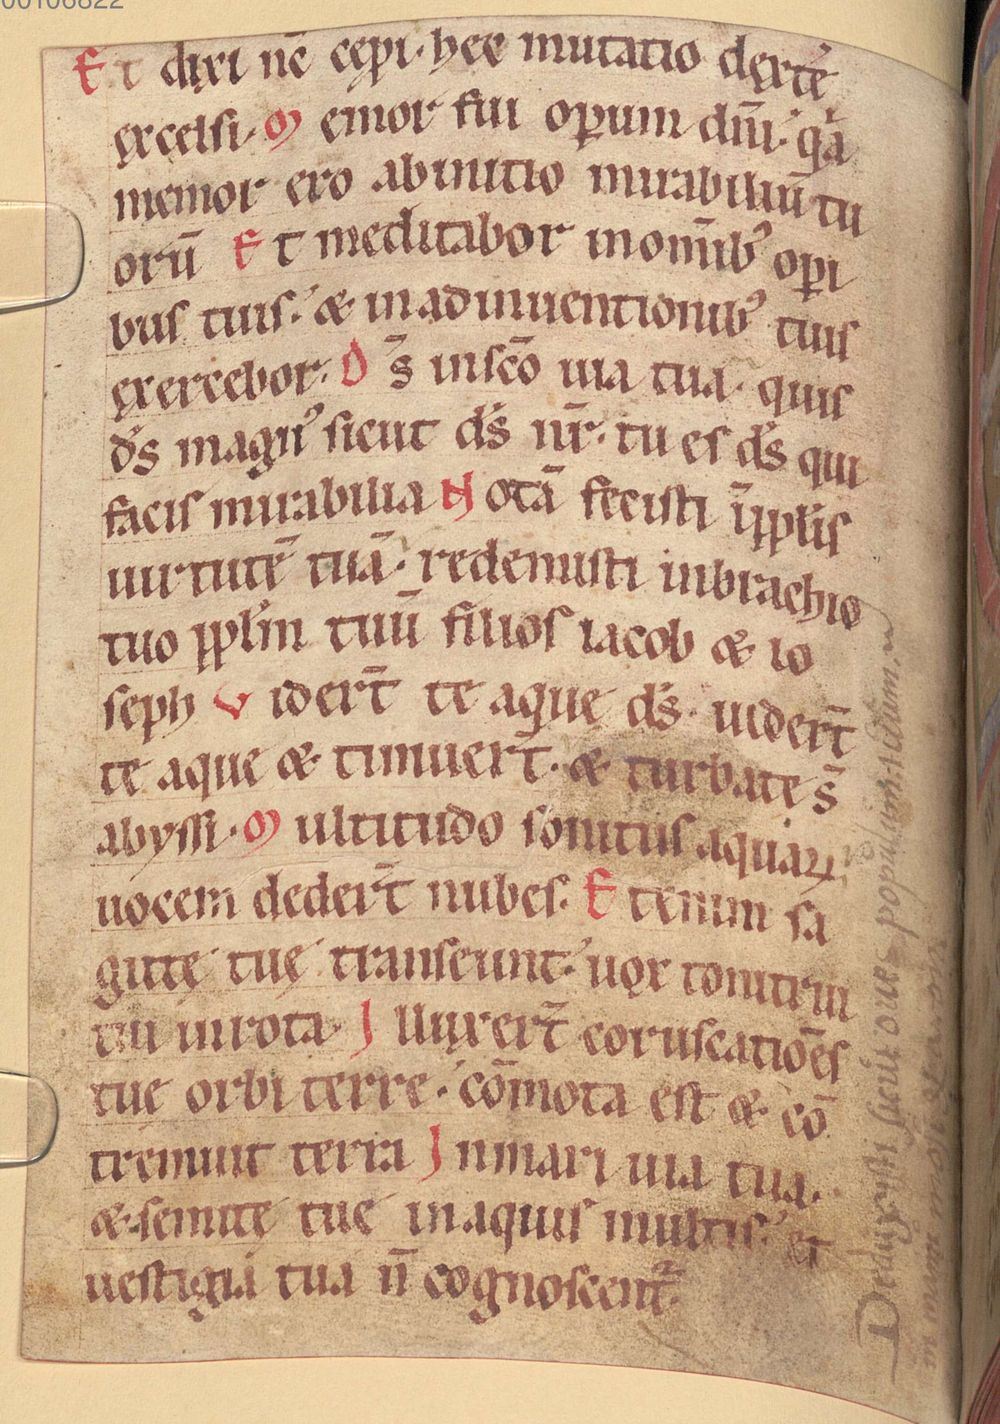 00106822
Et dixi nc̄ cepi· hec mutatio dextē
excelsi· Memor fui operum dn̄i· q̄a
memor ero abinitio mirabiliū tu
orū Et meditabor inomībꝰ operi
bus tuis· & inadinuentionibꝰ tuis
exercebor· Ds̄ insc̄o uia tua· quis
ds̄ magnꝰ sicut ds̄ nr̄· tu es ds̄ qui
facis mirabilia Notā fecisti ipp̄lis
uirtutē tuā· redemisti inbrachio
tuo pplm̄ tuū filios iacob & io
seph Vider̄t te aque ds̄· uider̄t
te aque & timuer̄t· & turbate s̄
abyssi· Multitudo sonitus aquaꝝ
uocem deder̄t nubes· Etenim sa
gitte tue transeunt· uox tonitrui
tui inrota· Illuxer̄t coruscatiōes
tue orbi terre· cōmota est & cō
tremuit terra Inmari uia tua·
& semite tue inaquis multis· et
uestigia tua n̄ cognoscentᷣ
Deduxisti sicut oues populum tuum in